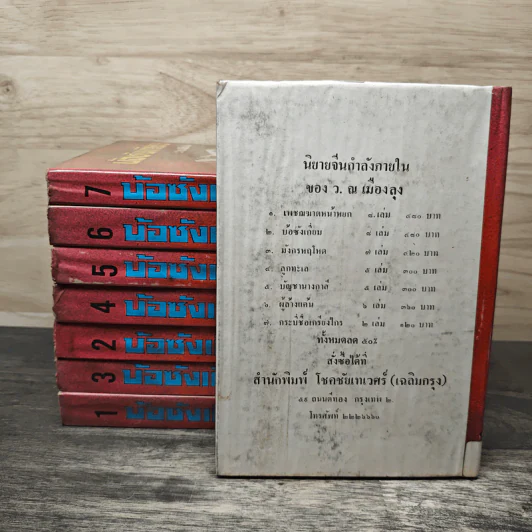 7 บ้อซังเ
6 บ้อซังเ
5 บ้อซังเ
4 บ้อซังเ
2 บ้อซังเ
3 บ้อซังเ
1 บ้อซังเ
นิยายจีนกำลังภายใน
ของ ว. ณ เมืองลุง
๑. เพชฌฆาตหน้าหยก ๘ เล่ม ๔๘๐ บาท
๒. บ้อซังเถี่ยบ ๘ เล่ม ๔๘๐ บาท
๓. มังกรหฤโหด ๗ เล่ม ๔๒๐ บาท
๔. ลูกทะเล ๕ เล่ม ๓๐๐ บาท
๕. บัญชานางกาลี ๕ เล่ม ๓๐๐ บาท
๖. ผู้ล้างแค้น ๖ เล่ม ๓๖๐ บาท
๗. กระบี่ชื่อเกรียงไกร ๒ เล่ม ๑๒๐ บาท
ทั้งหมดลด ๕๐%
สั่งซื้อได้ที่
สำนักพิมพ์ โชคชัยเทเวศร์ (เฉลิมกรุง)
ถนนตีทอง กรุงเทพ ๒
โทรศัพท์